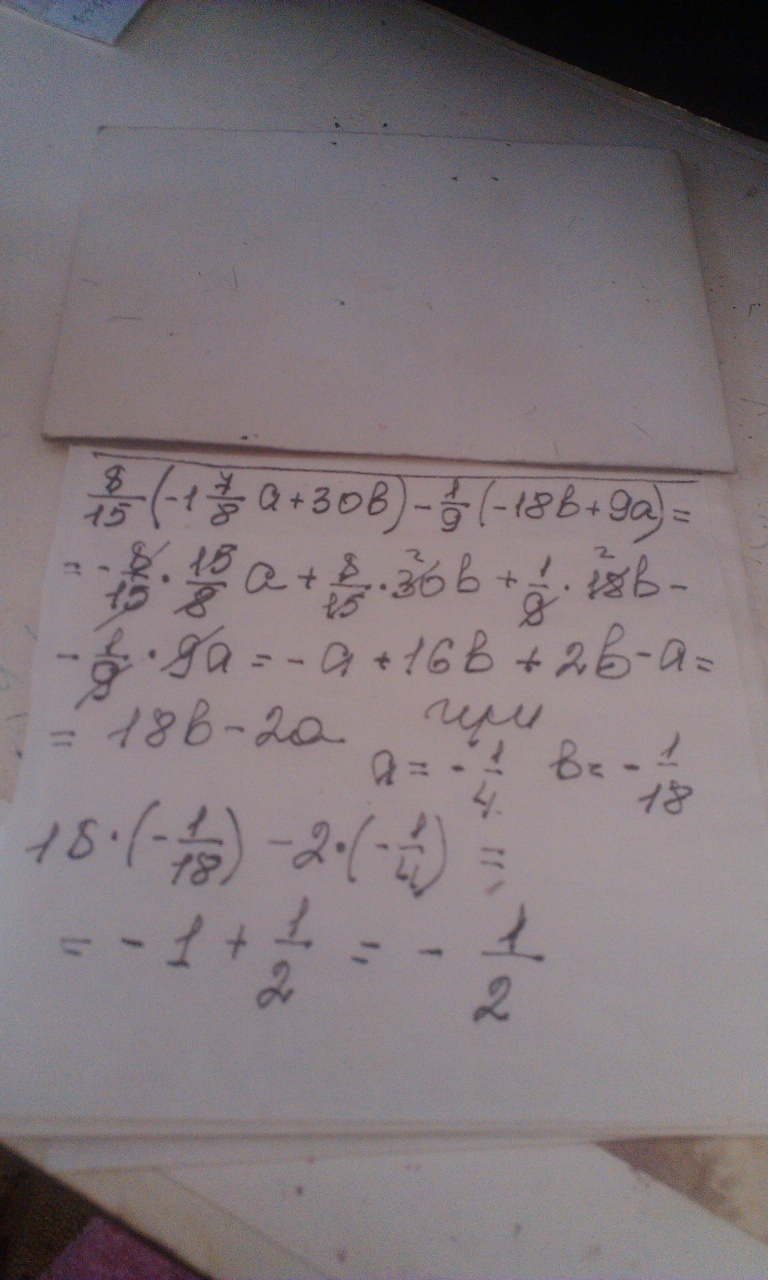 8/15 (-1 7/8 a + 30b) - 1/9 (-18b + 9a) =
= - 8/15 · 15/8 a + 8/15 · 30b 2 + 1/9 · 18b 2 -
- 1/9 · 9a = - a + 16b + 2b - a =
= 18b - 2a при
a = - 1/4 b = - 1/18
18 · (- 1/18) - 2 · (- 1/4) =
= - 1 + 1/2 = - 1/2